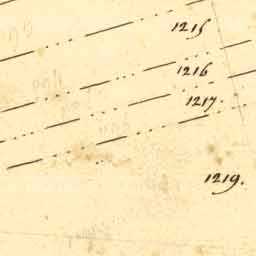 1215
1216
1217.
1219.